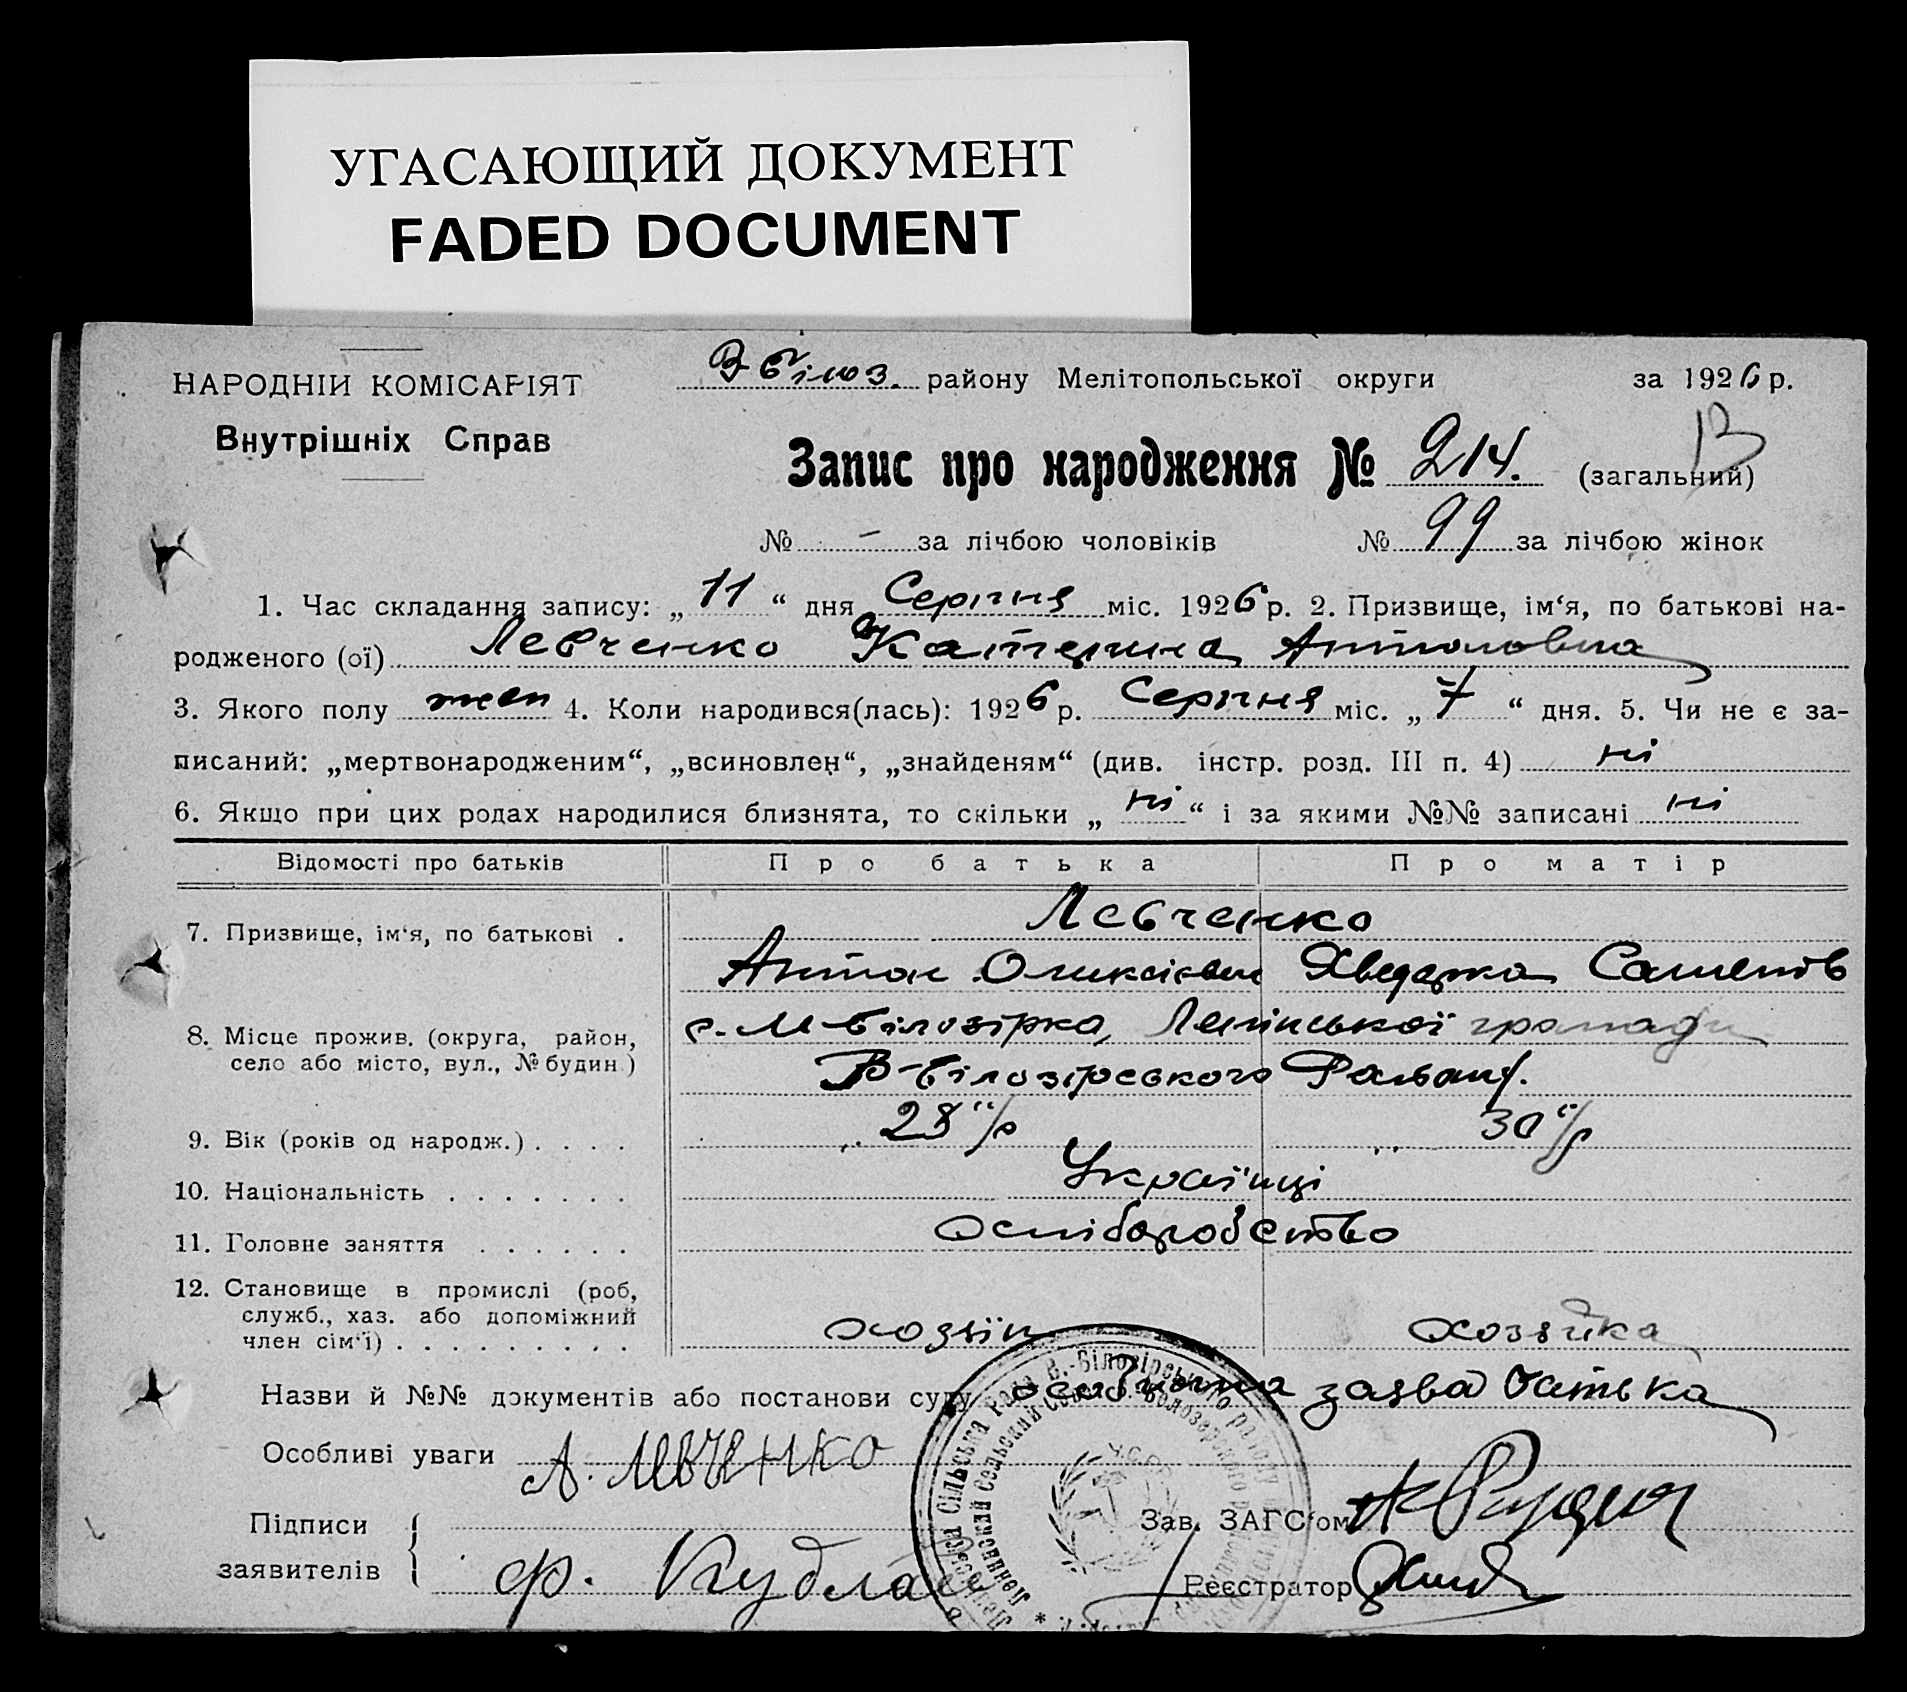 УГАСАЮЩИЙ ДОКУМЕНТ
FADED DOCUMENT
НАРОДНІЙ КОМІСАРІЯТ
Внутрішніх Справ
В Білоз. району Мелітопольської округи за 1926 р.
13
Запис про народження № 214. (загальний)
№ - за лічбою чоловіків № 99 за лічбою жінок
1. Час складання запису: „ 11 “ дня Серпня міс. 1926 р. 2. Призвище, ім‘я, по батькові на-
родженого (ої) Левченко Катерина Антоновна
3. Якого полу жен 4. Коли народився(лась): 1926 р. Серпня міс. „ 7 “ дня. 5. Чи не є за-
писаний: „мертвонародженим“, „всиновлен“, „знайденям“ (див. інстр. розд. III п. 4) ні
6. Якщо при цих родах народилися близнята, то скільки „ ні “ і за якими №№ записані ні
Відомості про батьків Про батька Про матір
7. Призвище, ім‘я, по батькові . Левченко
Антон Олексієвич Хведорка Семенів
8. Місце прожив. (округа, район, с. М-Білозірка, Ленінської громади
село або місто, вул., № будин.) В-Білозірського Району.
9. Вік (років од народж.) . . . . 28 р 30 р
10. Національність . . . . . . . Українці
11. Головне заняття . . . . . . хліборобство
12. Становище в промислі (роб,
служб., хаз. або допоміжний
член сім‘ї) . . . . . . . . . хозяїн хозяйка
Назви й №№ документів або постанови суду особиста заява батька
Особливі уваги А. Левченко
Підписи
заявителів ф. Кудлай
Зав. ЗАГС‘ом
Реєстратор
Сільська Рада В.-Білозірського району
Ленинский Сельский Совет В.-Белозерского
У.С.Р.Р.